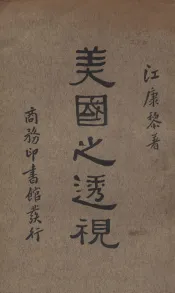 江康黎著
美國之透視
商務印書館發行